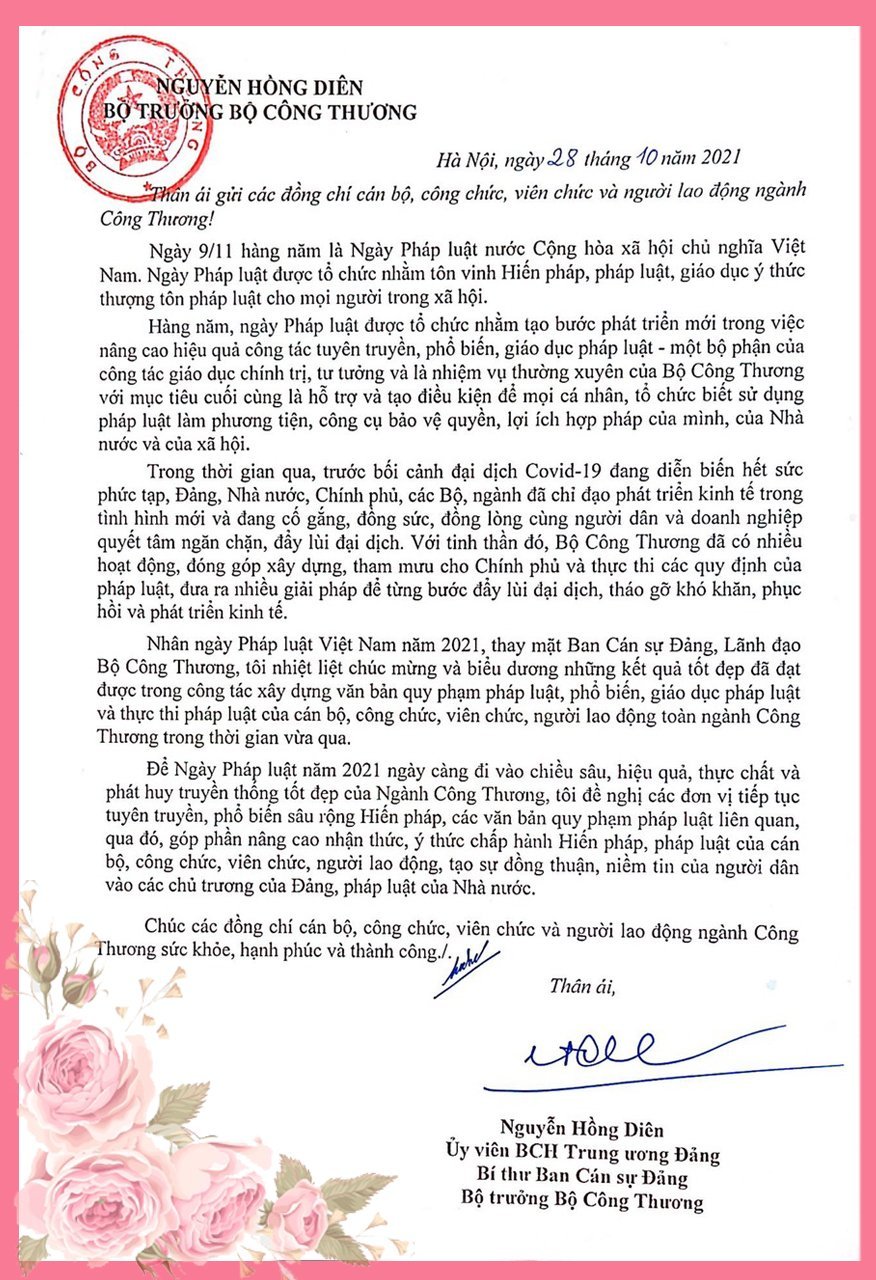 BỘ CÔNG THƯƠNG
NGUYỄN HỒNG DIÊN
BỘ TRƯỞNG BỘ CÔNG THƯƠNG
Hà Nội, ngày 28 tháng 10 năm 2021
Thân ái gửi các đồng chí cán bộ, công chức, viên chức và người lao động ngành
Công Thương!
Ngày 9/11 hàng năm là Ngày Pháp luật nước Cộng hòa xã hội chủ nghĩa Việt
Nam. Ngày Pháp luật được tổ chức nhằm tôn vinh Hiến pháp, pháp luật, giáo dục ý thức
thượng tôn pháp luật cho mọi người trong xã hội.
Hàng năm, ngày Pháp luật được tổ chức nhằm tạo bước phát triển mới trong việc
nâng cao hiệu quả công tác tuyên truyền, phổ biến, giáo dục pháp luật - một bộ phận của
công tác giáo dục chính trị, tư tưởng và là nhiệm vụ thường xuyên của Bộ Công Thương
với mục tiêu cuối cùng là hỗ trợ và tạo điều kiện để mọi cá nhân, tổ chức biết sử dụng
pháp luật làm phương tiện, công cụ bảo vệ quyền, lợi ích hợp pháp của mình, của Nhà
nước và của xã hội.
Trong thời gian qua, trước bối cảnh đại dịch Covid-19 đang diễn biến hết sức
phức tạp, Đảng, Nhà nước, Chính phủ, các Bộ, ngành đã chỉ đạo phát triển kinh tế trong
tình hình mới và đang cố gắng, đồng sức, đồng lòng cùng người dân và doanh nghiệp
quyết tâm ngăn chặn, đẩy lùi đại dịch. Với tinh thần đó, Bộ Công Thương đã có nhiều
hoạt động, đóng góp xây dựng, tham mưu cho Chính phủ và thực thi các quy định của
pháp luật, đưa ra nhiều giải pháp để từng bước đẩy lùi đại dịch, tháo gỡ khó khăn, phục
hồi và phát triển kinh tế.
Nhân ngày Pháp luật Việt Nam năm 2021, thay mặt Ban Cán sự Đảng, Lãnh đạo
Bộ Công Thương, tôi nhiệt liệt chúc mừng và biểu dương những kết quả tốt đẹp đã đạt
được trong công tác xây dựng văn bản quy phạm pháp luật, phổ biến, giáo dục pháp luật
và thực thi pháp luật của cán bộ, công chức, viên chức, người lao động toàn ngành Công
Thương trong thời gian vừa qua.
Để Ngày Pháp luật năm 2021 ngày càng đi vào chiều sâu, hiệu quả, thực chất và
phát huy truyền thống tốt đẹp của Ngành Công Thương, tôi đề nghị các đơn vị tiếp tục
tuyên truyền, phổ biến sâu rộng Hiến pháp, các văn bản quy phạm pháp luật liên quan,
qua đó, góp phần nâng cao nhận thức, ý thức chấp hành Hiến pháp, pháp luật của cán
bộ, công chức, viên chức, người lao động, tạo sự đồng thuận, niềm tin của người dân
vào các chủ trương của Đảng, pháp luật của Nhà nước.
Chúc các đồng chí cán bộ, công chức, viên chức và người lao động ngành Công
Thương sức khỏe, hạnh phúc và thành công./.
Thân ái,
Nguyễn Hồng Diên
Ủy viên BCH Trung ương Đảng
Bí thư Ban Cán sự Đảng
Bộ trưởng Bộ Công Thương